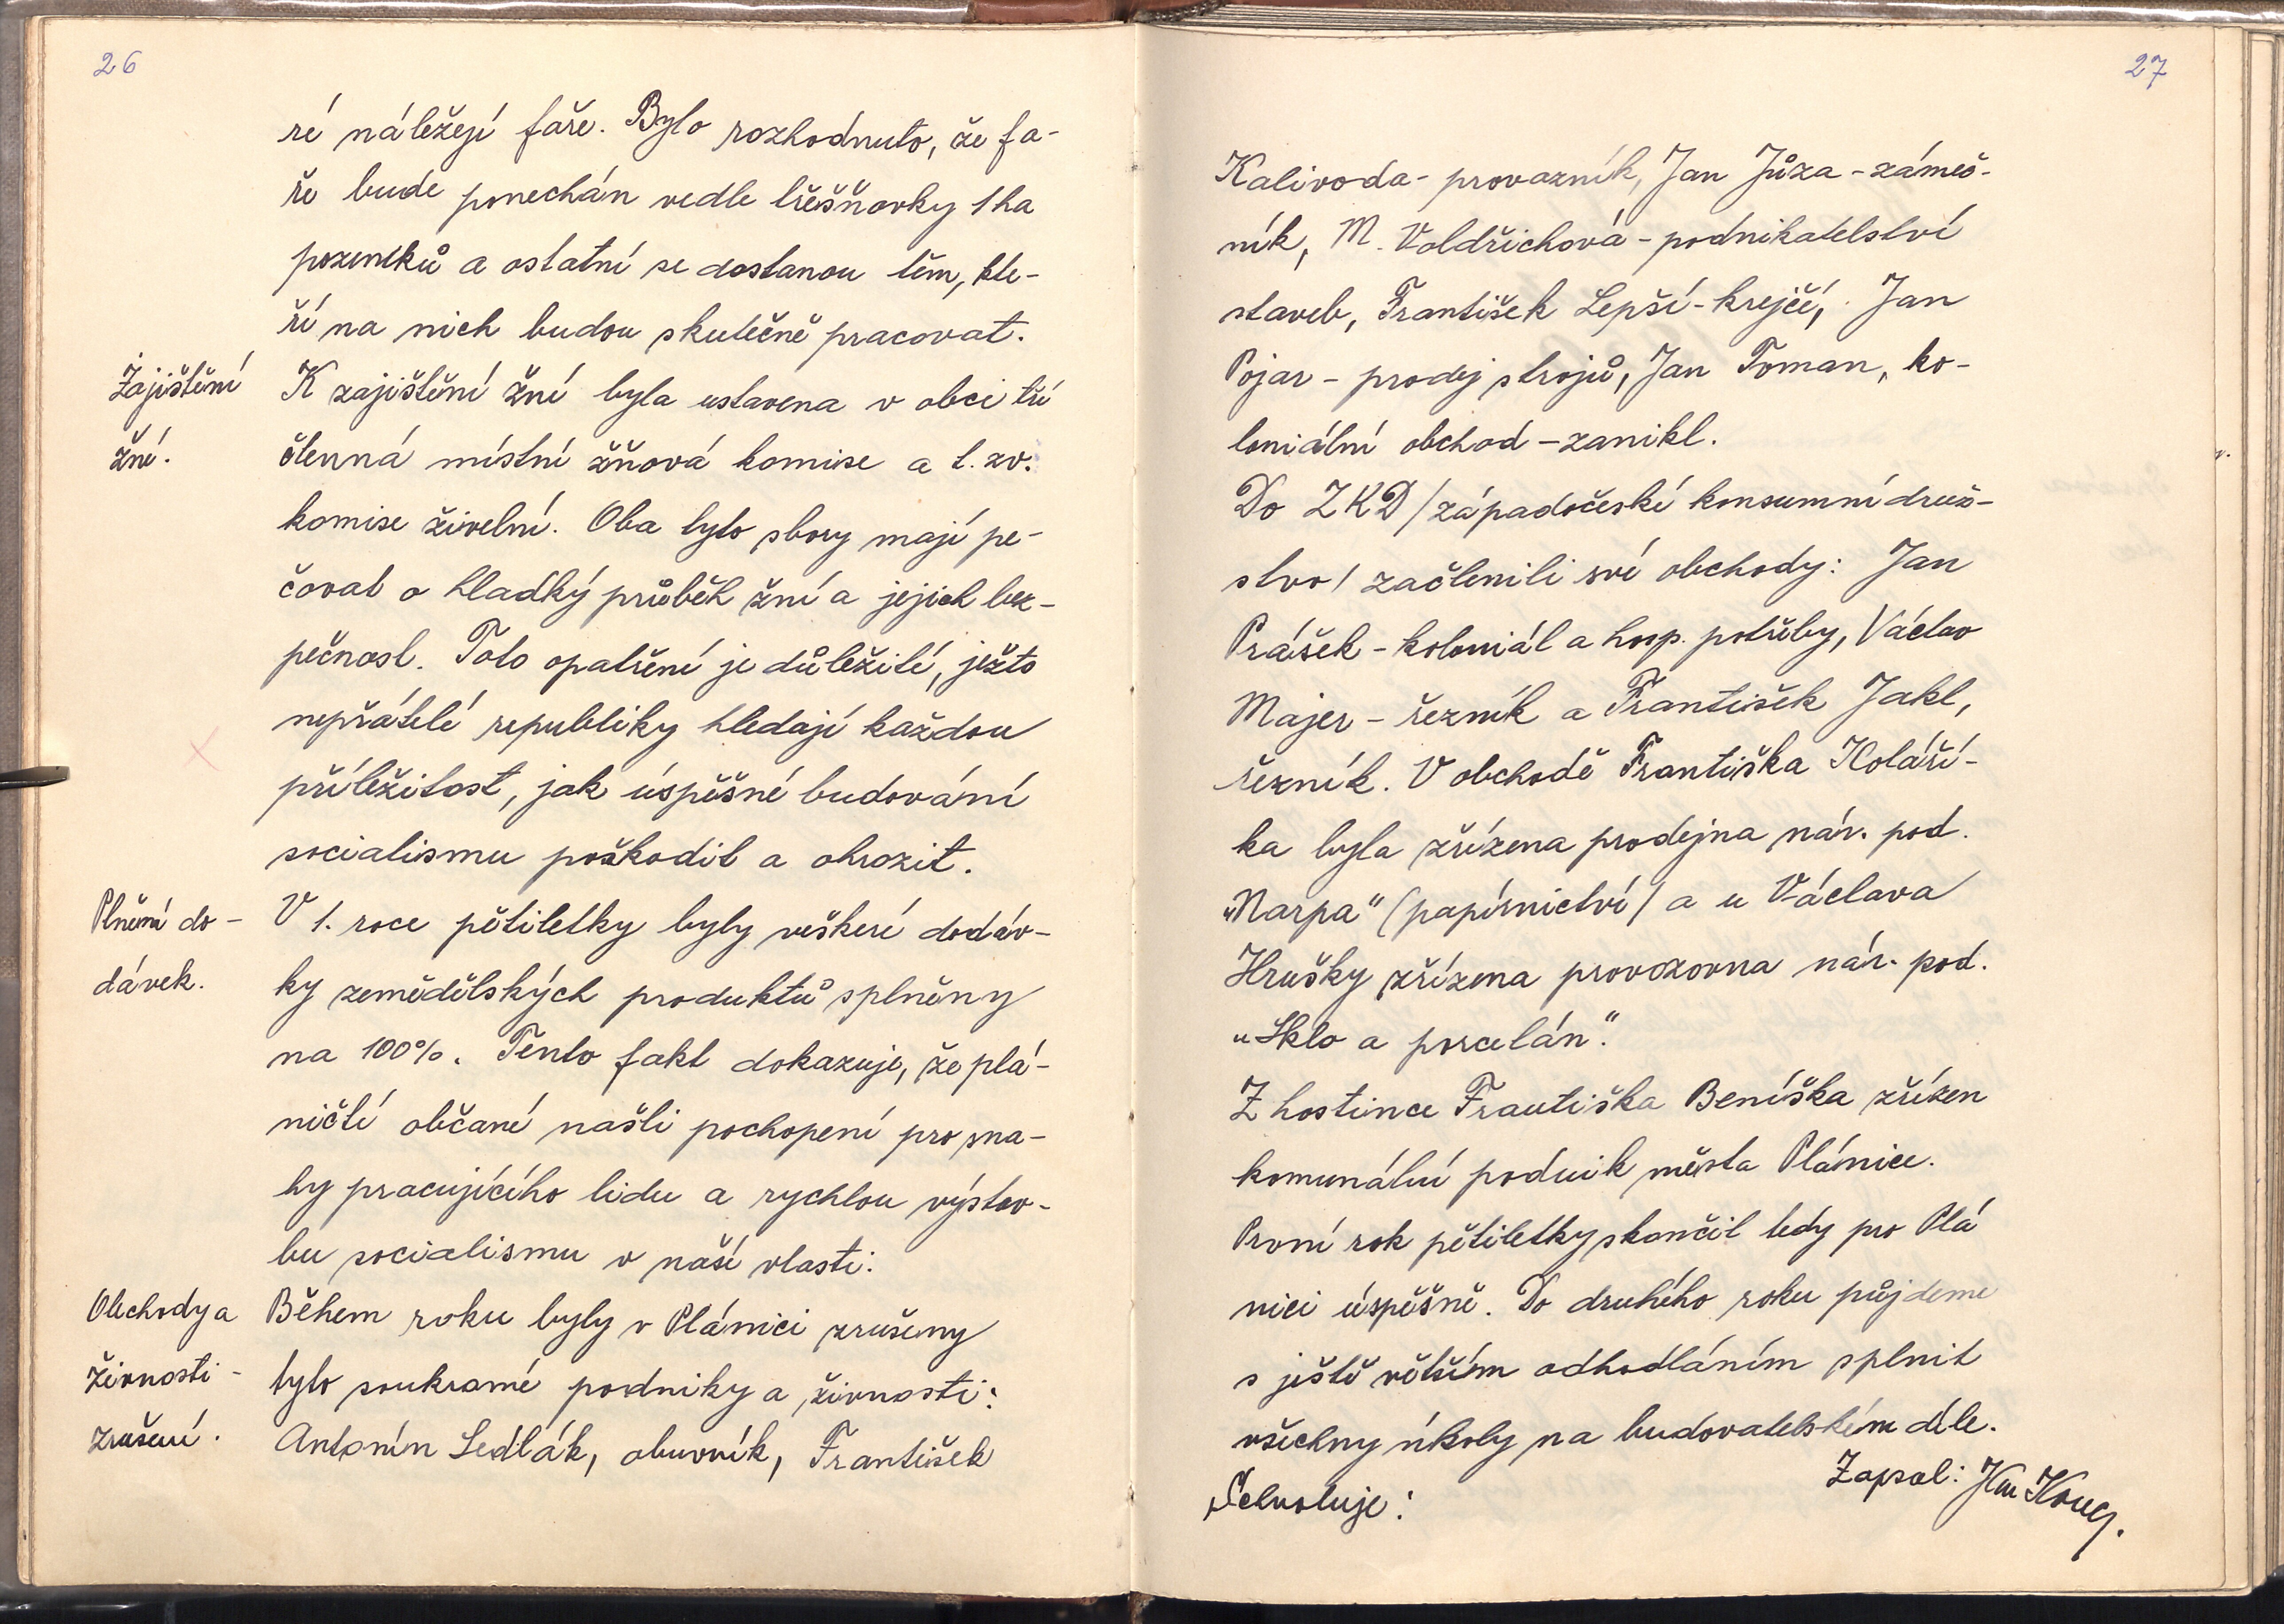 26
ré náležejí faře. Bylo rozhodnuto, že fa-
ře bude ponechán vedle třešňovky 1 ha
pozemků a ostatní se dostanou těm, kte-
ří na nich budou skutečně pracovat.
Zajištění
žní.
K zajištění žní byla ustavena v obci tří
členná místní žňová komise a t. zv.
komise živelní. Oba tyto sbory mají pe-
čovat o hladký průběh žní a jejich bez-
pečnost. Toto opatření je důležité, ježto
nepřátelé republiky hledají každou
příležitost, jak úspěšné budování
socialismu poškodit a ohrozit.
Plnění do-
dávek.
V 1. roce pětiletky byly veškeré dodáv-
ky zemědělských produktů splněny
na 100%. Tento fakt dokazuje, že plá-
ničtí občané našli pochopení pro sna-
hy pracujícího lidu a rychlou výstav-
bu socialismu v naší vlasti.
Obchody a
živnosti -
zrušení.
Během roku byly v Plánici zrušeny
tyto soukromé podniky a živnosti:
Antonín Sedlák, obuvník, František
27
Kalivoda - provazník, Jan Jůza - zámeč-
ník, M. Voldřichová - podnikatelství
staveb, František Lepší - krejčí, Jan
Pojar - prodej strojů, Jan Toman, ko-
loniální obchod - zanikl.
Do ZKD /západočeské konsumní druž-
stvo/ začlenili své obchody: Jan
Prášek - koloniál a hosp. potřeby, Václav
Majer - řezník a František Jakl,
řezník. V obchodě Františka Koláří-
ka byla zřízena prodejna nár. pod.
„Narpa" (papírnictví/ a u Václava
Hrušky zřízena provozovna nár. pod.
„Sklo a porcelán".
Z hostince Františka Beníška zřízen
komunální podnik města Plánice.
První rok pětiletky skončil tedy pro Plá
nici úspěšně. Do druhého roku půjdeme
s ještě větším odhodláním splnit
všechny úkoly na budovatelském díle.
Zapsal:
Schvaluje: